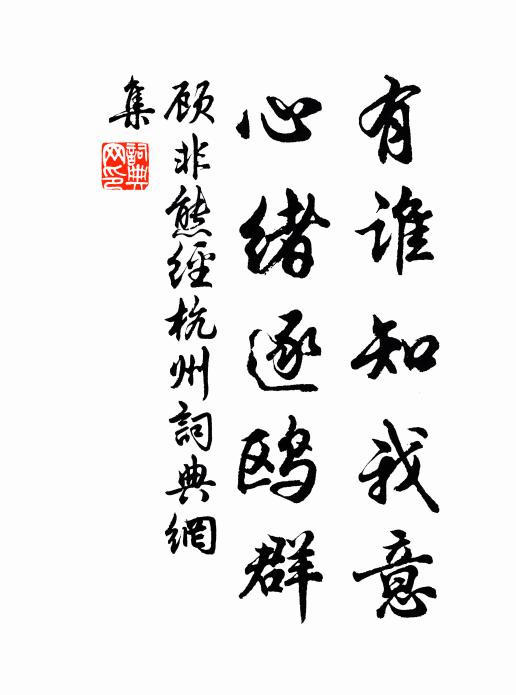 有谁知我意
心绪逐鸥群
顾非熊经杭州詞典網
集
詞典網印